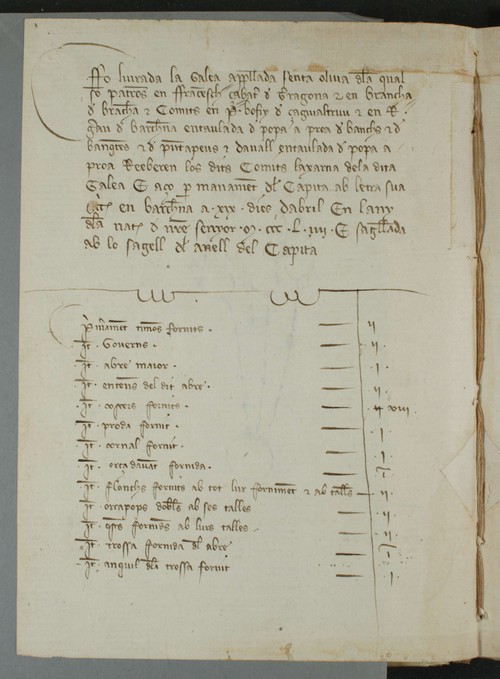 Fo liurada la Galea apellada senta oliua dla qual
so patros en ffrancesch çabat d Tragona & en Brancha
d bracha & Comits en P. bosip & en R.
entaulada d popa a proa d banchs & d
& d & dauall entaulada d popa a
proa Reeberen los dits Comits la xarna dela dita
Galea E aço p manamet dl Capita ab letra sua
en barchna a .xxx. dies dabril En lany
dla nat d nre senyor .M. ccc .L. iiii. E sagllada
ab lo sagell dl anell del Capita
P. mamet timos fornits . ii
It . Gouerns . ii
It . abre maior . i
It . entens del dit abre . ii
It . costers fornits . xviii
It . proda fornit . i
It . cornal fornit . i
It . orça dauat fornida . i
It . fornits ab tot lur fornimet & ab talls ii
It . orçapops dobls ab ses talles ii
It . fornids ab lurs talles ii
It . trossa fornida dl abre i
It . anquil dla trossa fornit i